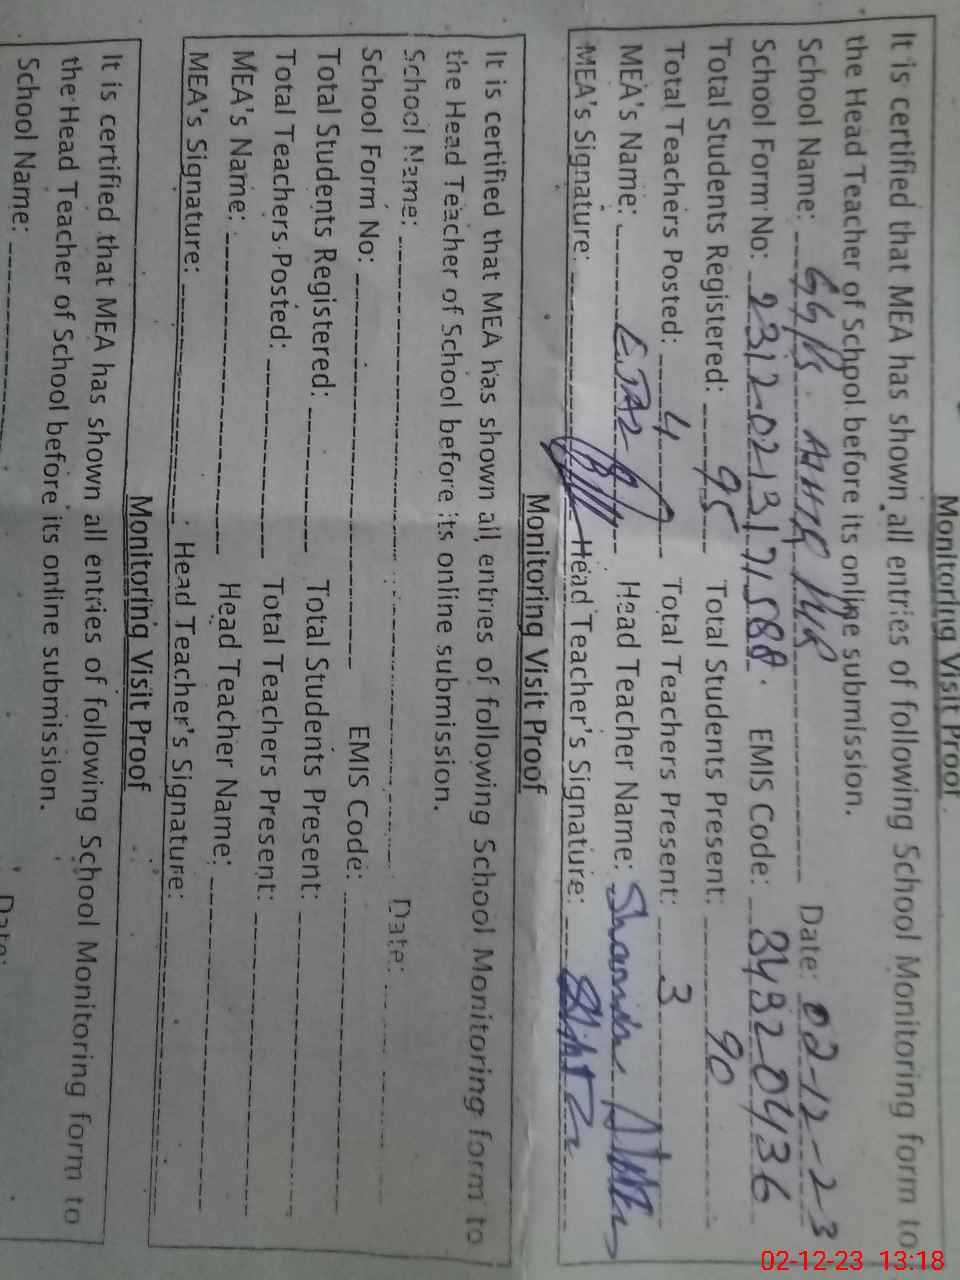 Monitoring Visit Proof
It is certified that MEA has shown all entries of following School Monitoring form to
the Head Teacher of School before its online submission.
School Name: GGPS Date: 02-12-23
School Form No: EMIS Code: 34920436
Total Students Registered: 95 Total Students Present: 90
Total Teachers Posted: 4 Total Teachers Present: 3
MEA's Name: EJAZ Head Teacher Name:
MEA's Signature: Head Teacher's Signature:
Monitoring Visit Proof
It is certified that MEA has shown all entries of following School Monitoring form to
the Head Teacher of School before its online submission.
School Name: Date:
School Form No: EMIS Code:
Total Students Registered: Total Students Present:
Total Teachers Posted: Total Teachers Present:
MEA's Name: Head Teacher Name:
MEA's Signature: Head Teacher's Signature:
Monitoring Visit Proof
It is certified that MEA has shown all entries of following School Monitoring form to
the Head Teacher of School before its online submission.
School Name: Date:
02-12-23 13:18